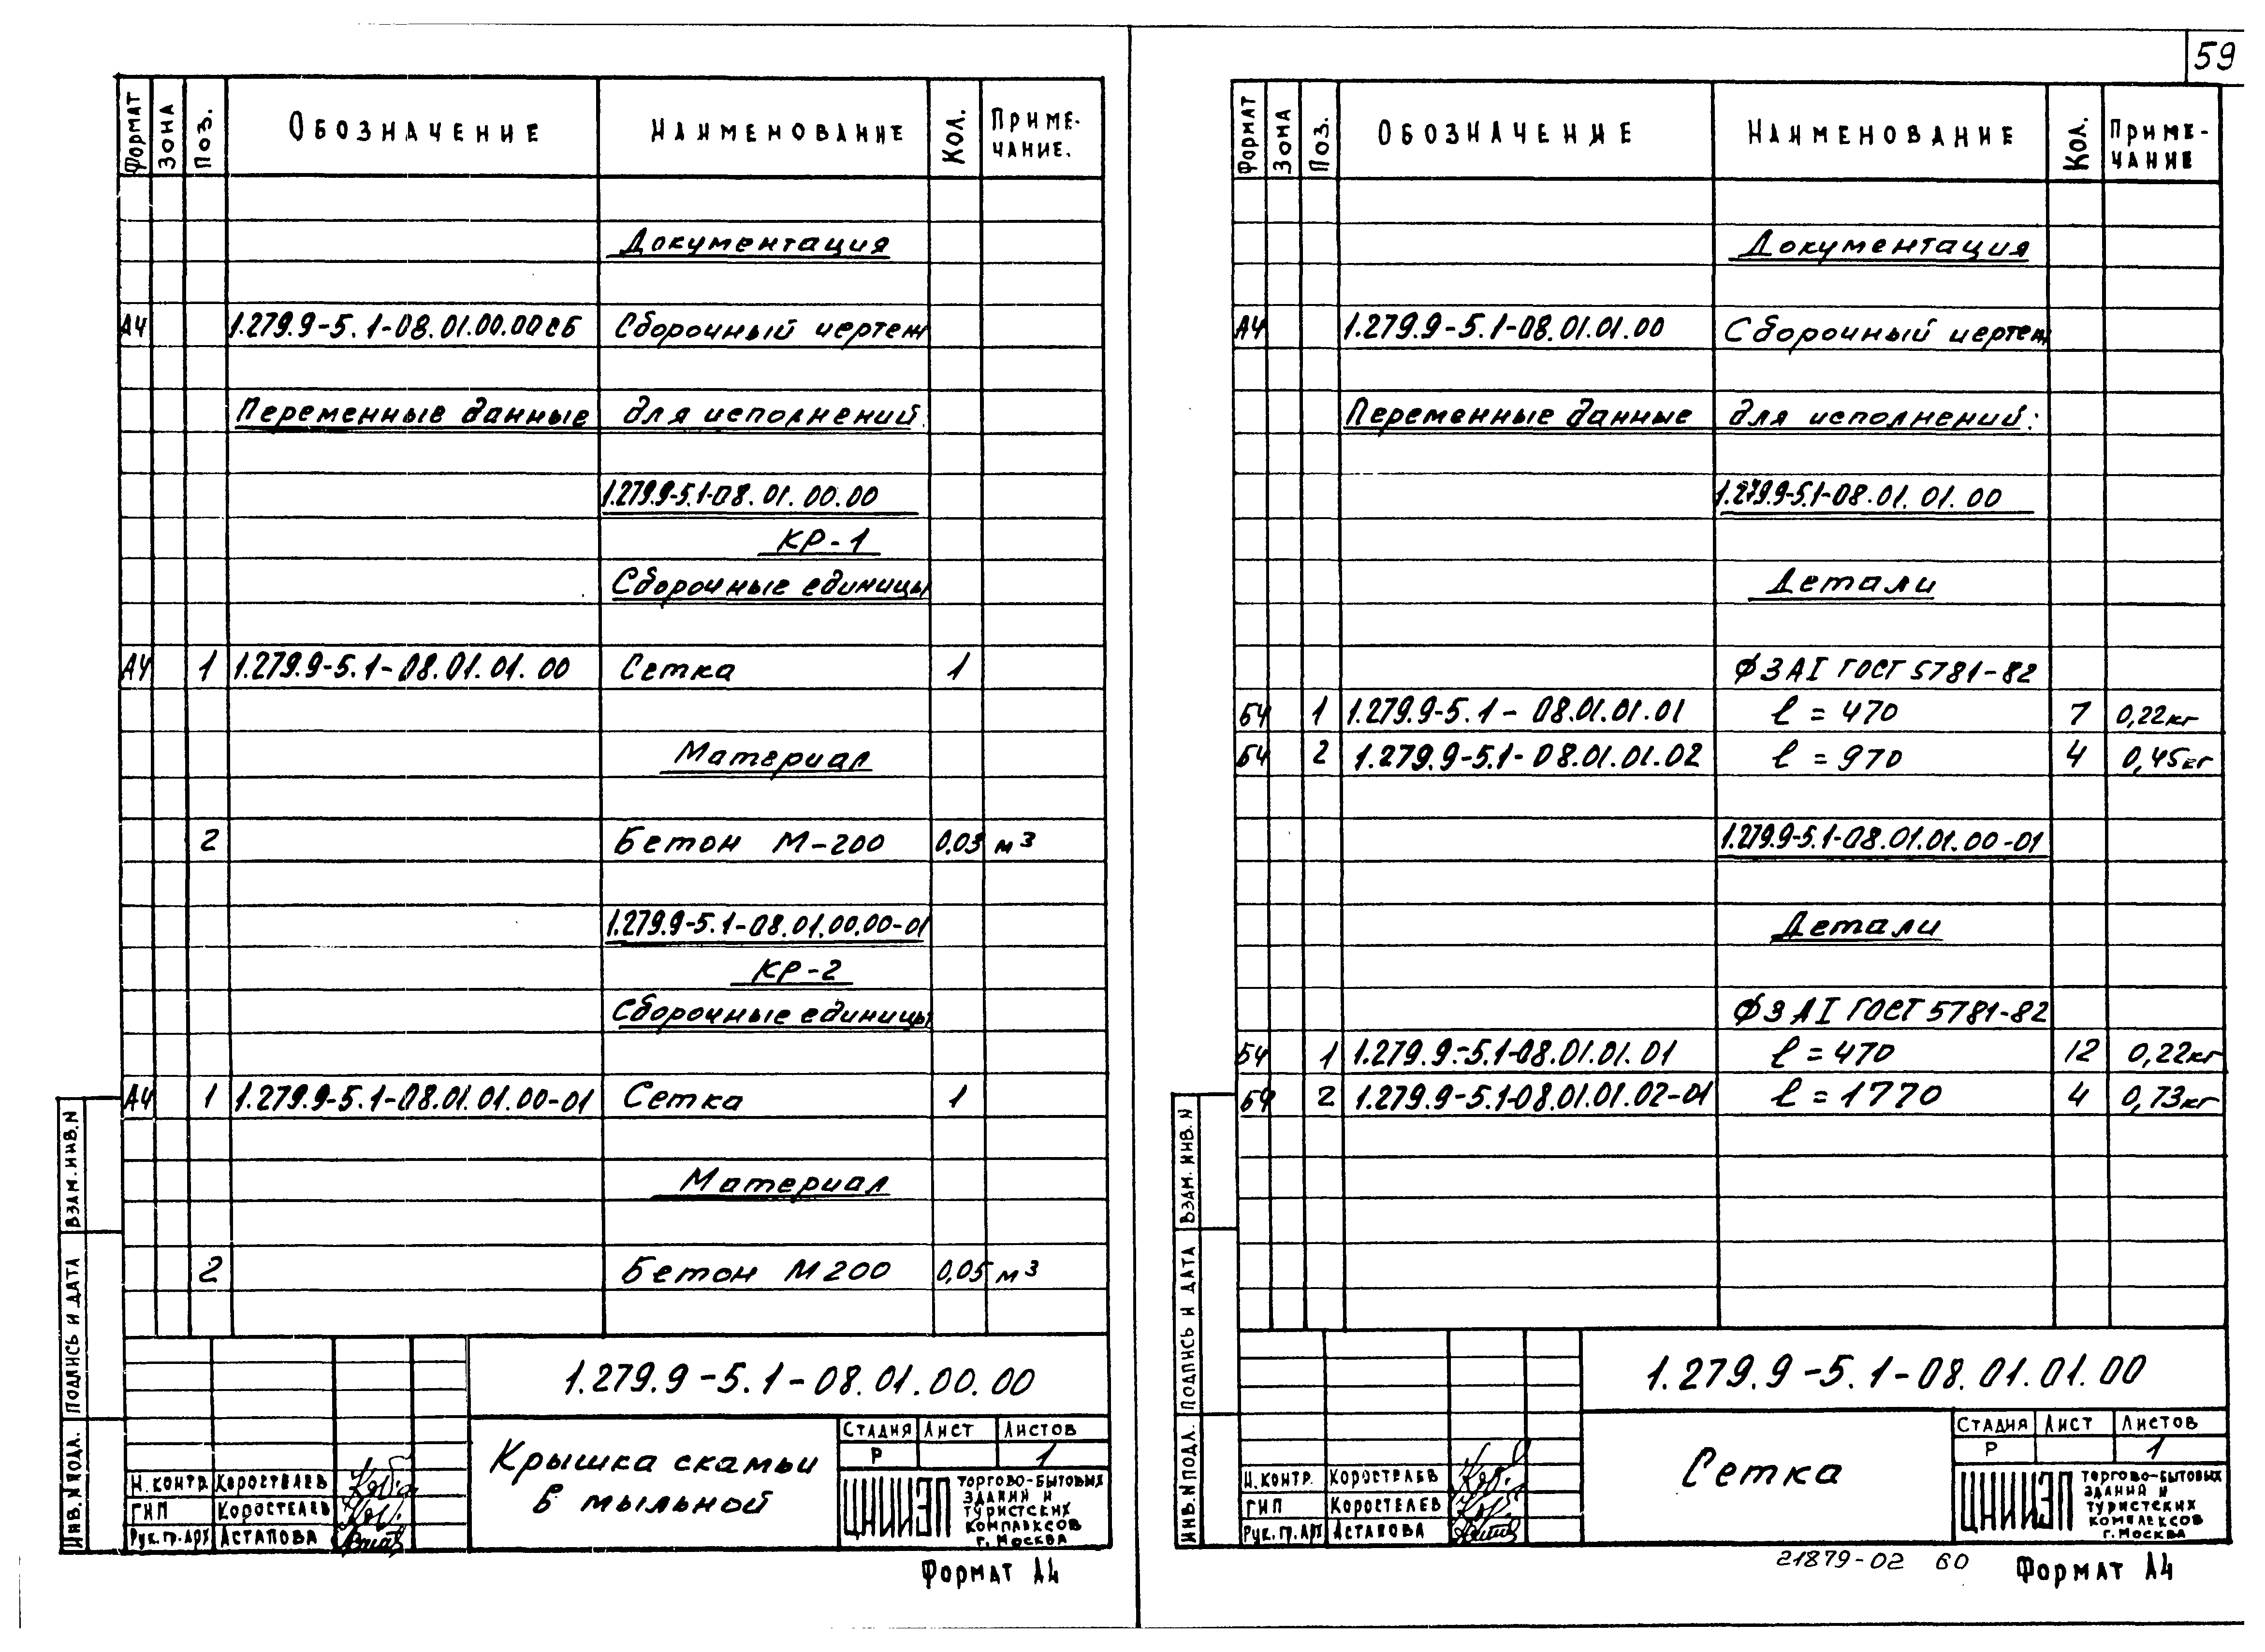 59
Формат Зона Поз. Обозначение Наименование Кол. Приме-
чание.
Документация
А4 1.279.9-5.1-08.01.00.00СБ Сборочный чертеж
Переменные данные для исполнений:
1.279.9-5.1-08.01.00.00
КР-1
Сборочные единицы
А4 1 1.279.9-5.1-08.01.01.00 Сетка 1
Материал
2 Бетон М-200 0,03 м³
1.279.9-5.1-08.01.00.00-01
КР-2
Сборочные единицы
А4 1 1.279.9-5.1-08.01.01.00-01 Сетка 1
Материал
2 Бетон М200 0,05 м³
Взам. инв. N
Подпись и дата
Инв. N подл.
1.279.9-5.1-08.01.00.00
Крышка скамьи
в мыльной
Стадия Лист Листов
Р 1
Н. контр. Коростелев
ГИП Коростелев
Рук. гр. арх Астапова
ЦНИИЭП торгово-бытовых
зданий и
туристских
комплексов
г. Москва
Формат А4
Формат Зона Поз. Обозначение Наименование Кол. Приме-
чание
Документация
А4 1.279.9-5.1-08.01.01.00 Сборочный чертеж
Переменные данные для исполнений:
1.279.9-5.1-08.01.01.00
Детали
Ф3АI ГОСТ 5781-82
БЧ 1 1.279.9-5.1-08.01.01.01 ℓ = 470 7 0,22кг
БЧ 2 1.279.9-5.1-08.01.01.02 ℓ = 970 4 0,45кг
1.279.9-5.1-08.01.01.00-01
Детали
Ф3АI ГОСТ 5781-82
БЧ 1 1.279.9-5.1-08.01.01.01 ℓ = 470 12 0,22кг
БЧ 2 1.279.9-5.1-08.01.01.02-01 ℓ = 1770 4 0,73кг
Взам. инв. N
Подпись и дата
Инв. N подл.
1.279.9-5.1-08.01.01.00
Сетка
Стадия Лист Листов
Р 1
Н. контр. Коростелев
ГИП Коростелев
Рук. гр. арх Астапова
ЦНИИЭП торгово-бытовых
зданий и
туристских
комплексов
г. Москва
21879-02 60
Формат А4